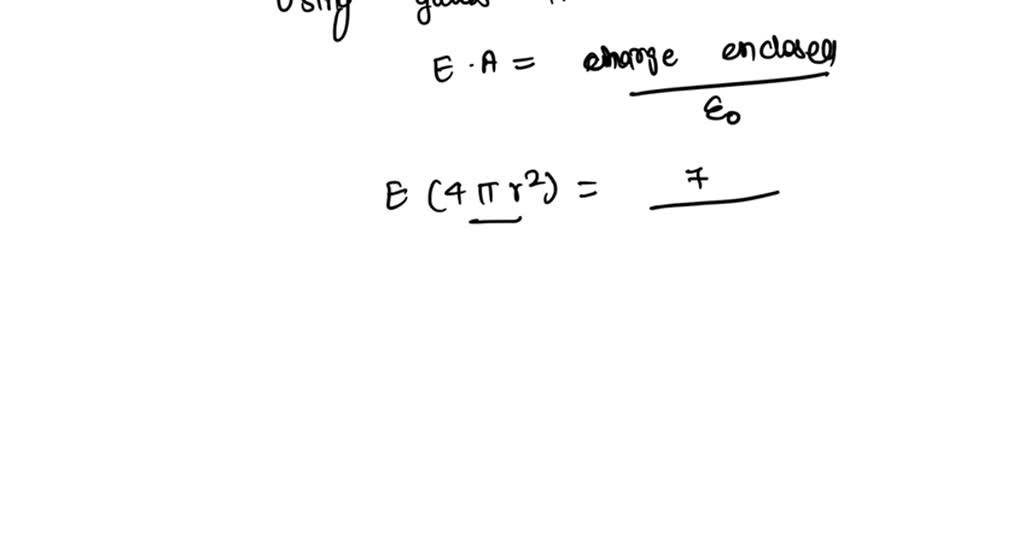 Using
E · A = charge enclosed
ε₀
E (4 π r²) = 7